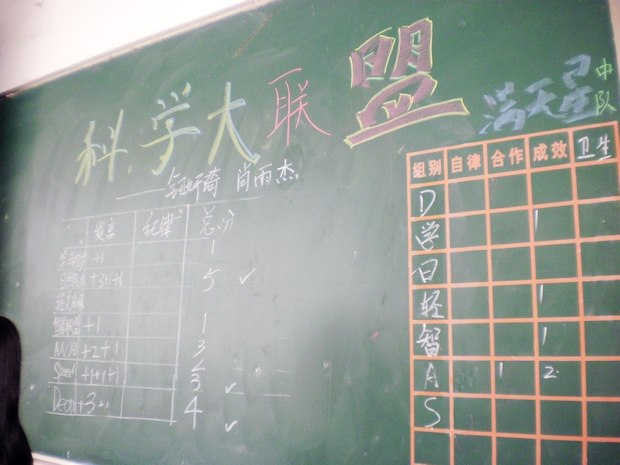 科学大联盟
满天星
中队
肖雨杰
发言 纪律 总分
+1 1
+3+1+1 5 ✓
+1 1
+2+1 3
Speed +1+1+1 3 ✓
+3+1 4 ✓
组别 自律 合作 成效 卫生
D
学 1
日
轻 1
智 1
A 1 2
S